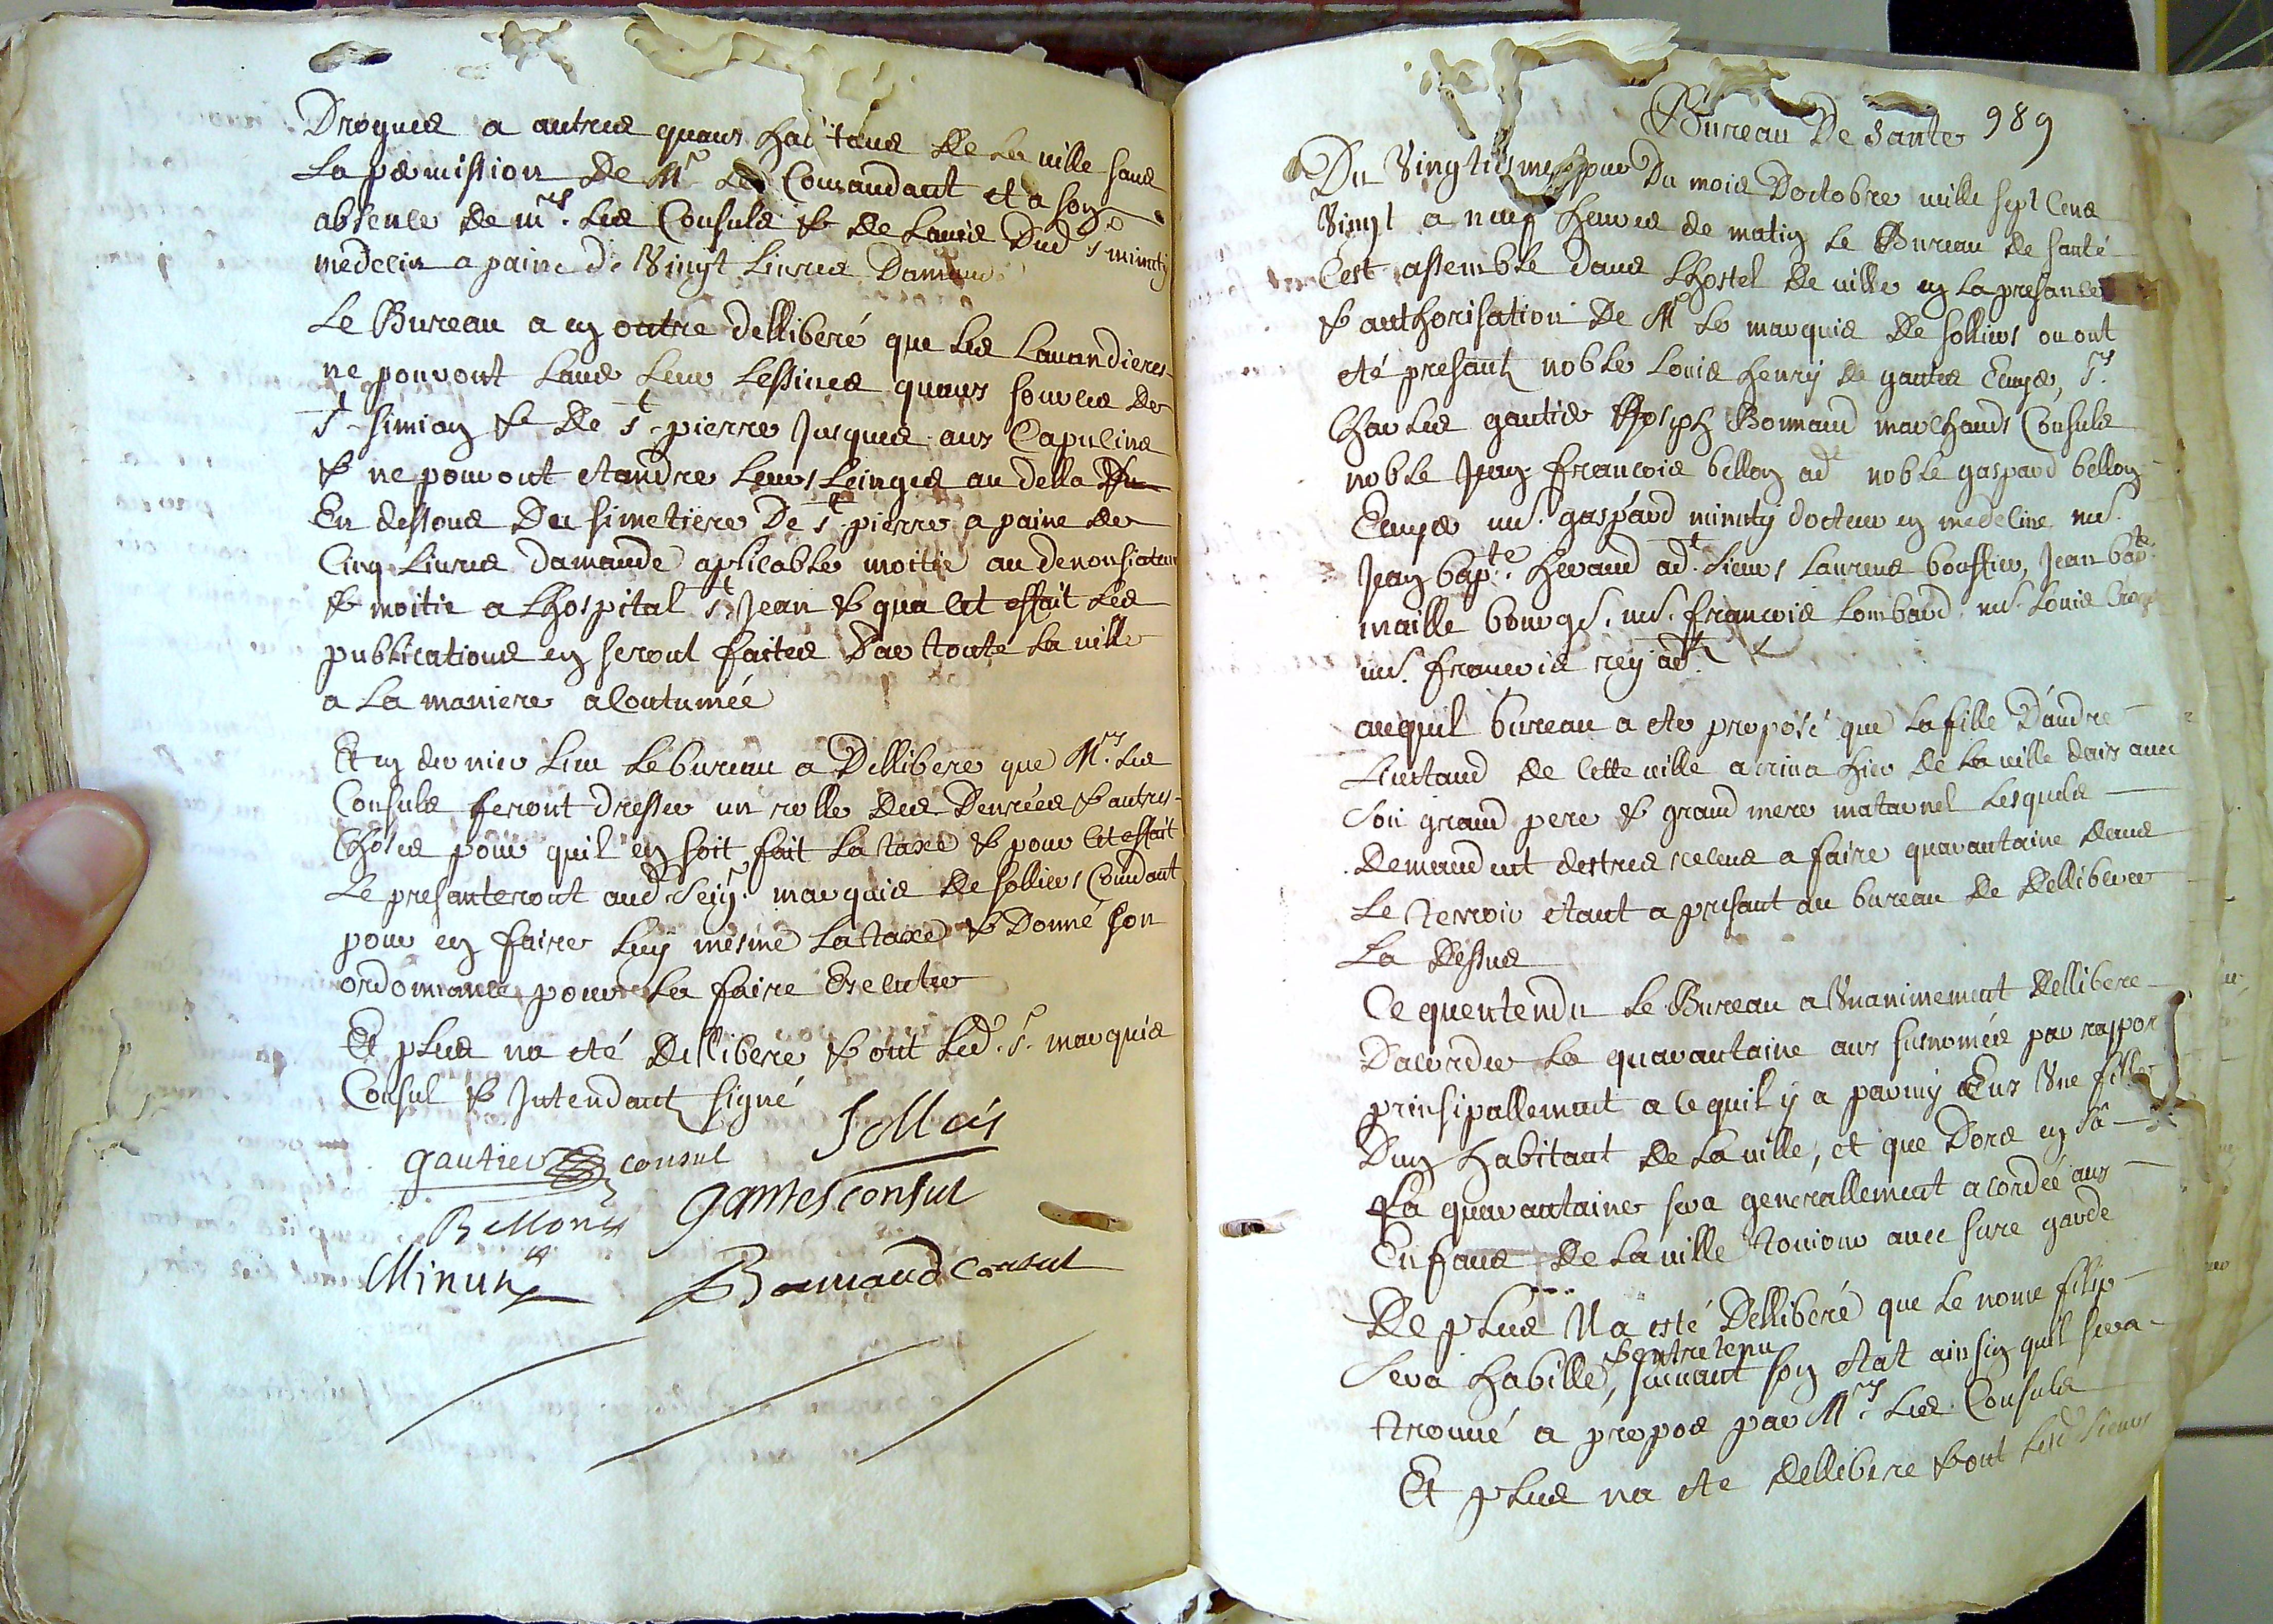 Drogues a autres quaus habitans de la ville sans
La permission de Mr Le Comandant et a son
absence de mrs. Les Consuls & de Lavis dud s minuty
medecin a paine de Vingt Livres Damande
Le Bureau a en outre delliberé que Les Lavandieres
ne pouront Laver Leur Lessives quaux sources de
St. simian & de St. pierre Jusques aux Capucins
& ne pouront etandre Leurs Leinges au della
En dessous Du simetiere De St pierre a paine de
Cinq Livres damande aplicable moitie au denonsiateur
& moitie a Lhospital St Jean & qua cet effait Les
publications en seront faites Par toute La ville
a La maniere acoutumée
Et en dernier Lieu Le bureau a Dellibere que Mrs. Les
Consuls feront dresser un rolle des Denrées & autres
Choses pour quil en soit fait La taxe & pour cet effait
Le presanteront aud. Seigr. marquis de solliers Comdant
pour en faire Luy mesme La taxe & Donné son
ordonnance pour La faire Executer
Et plus na eté dellibere & ont Led. Sr. marquis
Consul & Intendant signé
gautier consul Solliés
Bellon gantes consul
Minuty Bonnaud consul
Bureau De Sante 989
Du Vingtiesme jour Du mois Doctobre mille sept Cens
Vingt a neuf heures de matin Le Bureau de santé
Cest assemble dans Lhostel de ville en La presance
& authorisation De Mr Le marquis de solliers ou ont
eté presant noble Louis henry de gantes Ecuyer, Srs.
Charles gautier Joseph Bonnaud marchands Consuls
noble Jean francois bellon adt noble gaspard bellon
Ecuyer ms. gaspard minuty docteur en medecine ms.
Jean bapte. heraud adt. sieurs Laurens boussier, Jean bapte.
maille bourgs. ms. francois Lombard ms. Louis
ms. francois rey adt.
auquil bureau a ete proposé que La fille Dandre
Lieutaud de Cette ville ariva hier de La ville daix avec
son grand pere & grand mere maternel Lesquels
demandent destres receus a faire quarantaine dans
Le terroir etant a presant au bureau de delliberer
La dessus
Ce quentendu Le Bureau a Unanimement dellibere
Dacorder La quarantaine aux susnomés par rapor
prinsipallement a ce quil y a parmy Eux Une fille
Dun habitant de La ville, et que Dores en Sa
La quarantaine sera generallement acordée aux
Enfans de La ville toujour avec sure garde
De plus Il a esté Delliberé que Le nome filip
& entretenu
Sera habille, suivant son etat ainsin quil sera
trouvé a propos par Mrs. Les Consuls
Et plus na ete dellibere & ont Lesd sieurs